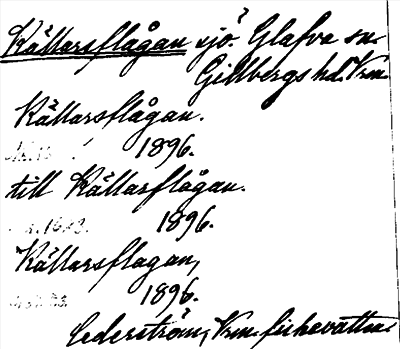 Källarsflågan sjö? Glafva sn.
Gillbergs hd. Vrm.
Källarsflågan.
1896.
till Källarsflågan.
1896.
Källarsflagan,
1896.
Cederström, Vrm. fiskevatten